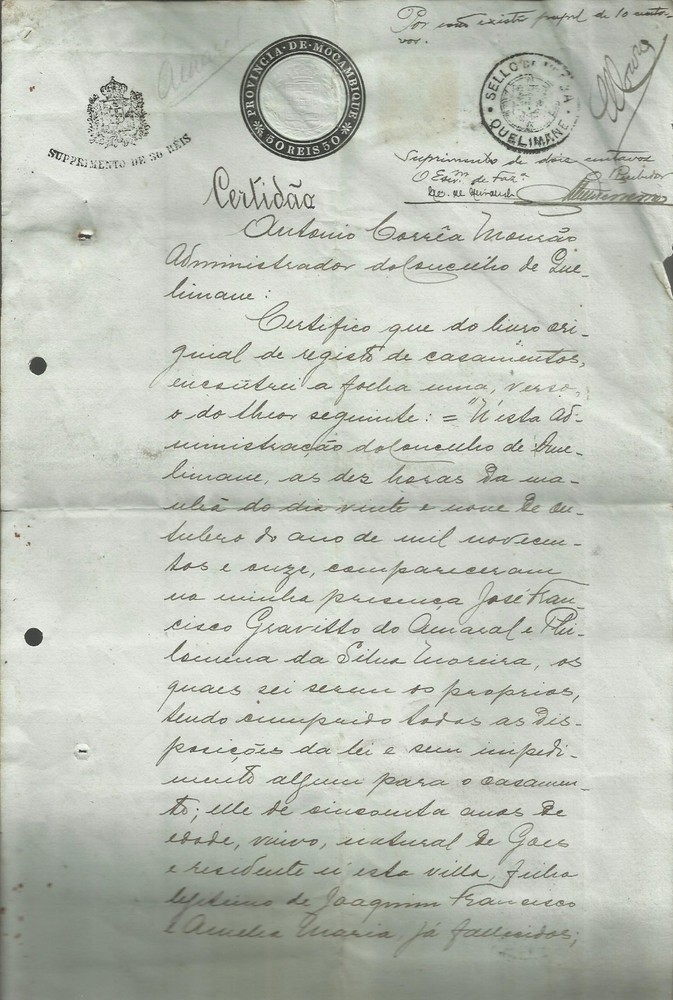 Por não existir papel de 10 centa-
vos.
PROVINCIA·DE·MOÇAMBIQUE
50 REIS 50
SELLO DE
QUELIMANE
SUPPRIMENTO DE 30 RÉIS
Suprimento de dois centavos
O Esc. de Faz.ª
Certidão
Antonio Corrêa Mourão
Administrador do Concelho de Que-
limane:
Certifico que do livro ori-
ginal de registo de casamentos,
encontrei a folha uma, verso,
o do theor seguinte: = "N'esta Ad-
ministração do Concelho de Que-
limane, as dez horas da ma-
nhã do dia vinte e nove de ou-
tubro do ano de mil novecen-
tos e onze, compareceram
na minha presença José Fran-
cisco Gravitto do Amaral e Phi-
lomena da Silva Moreira, os
quaes sei serem os proprios,
tendo cumprido todas as dis-
posições da lei e sem impedi-
mento algum para o casamen-
to; elle de cincoenta anos de
edade, viuvo, natural de Goes
e residente n'esta villa, filho
legitimo de Joaquim Francisco
e Amelia Maria, já fallecidos;